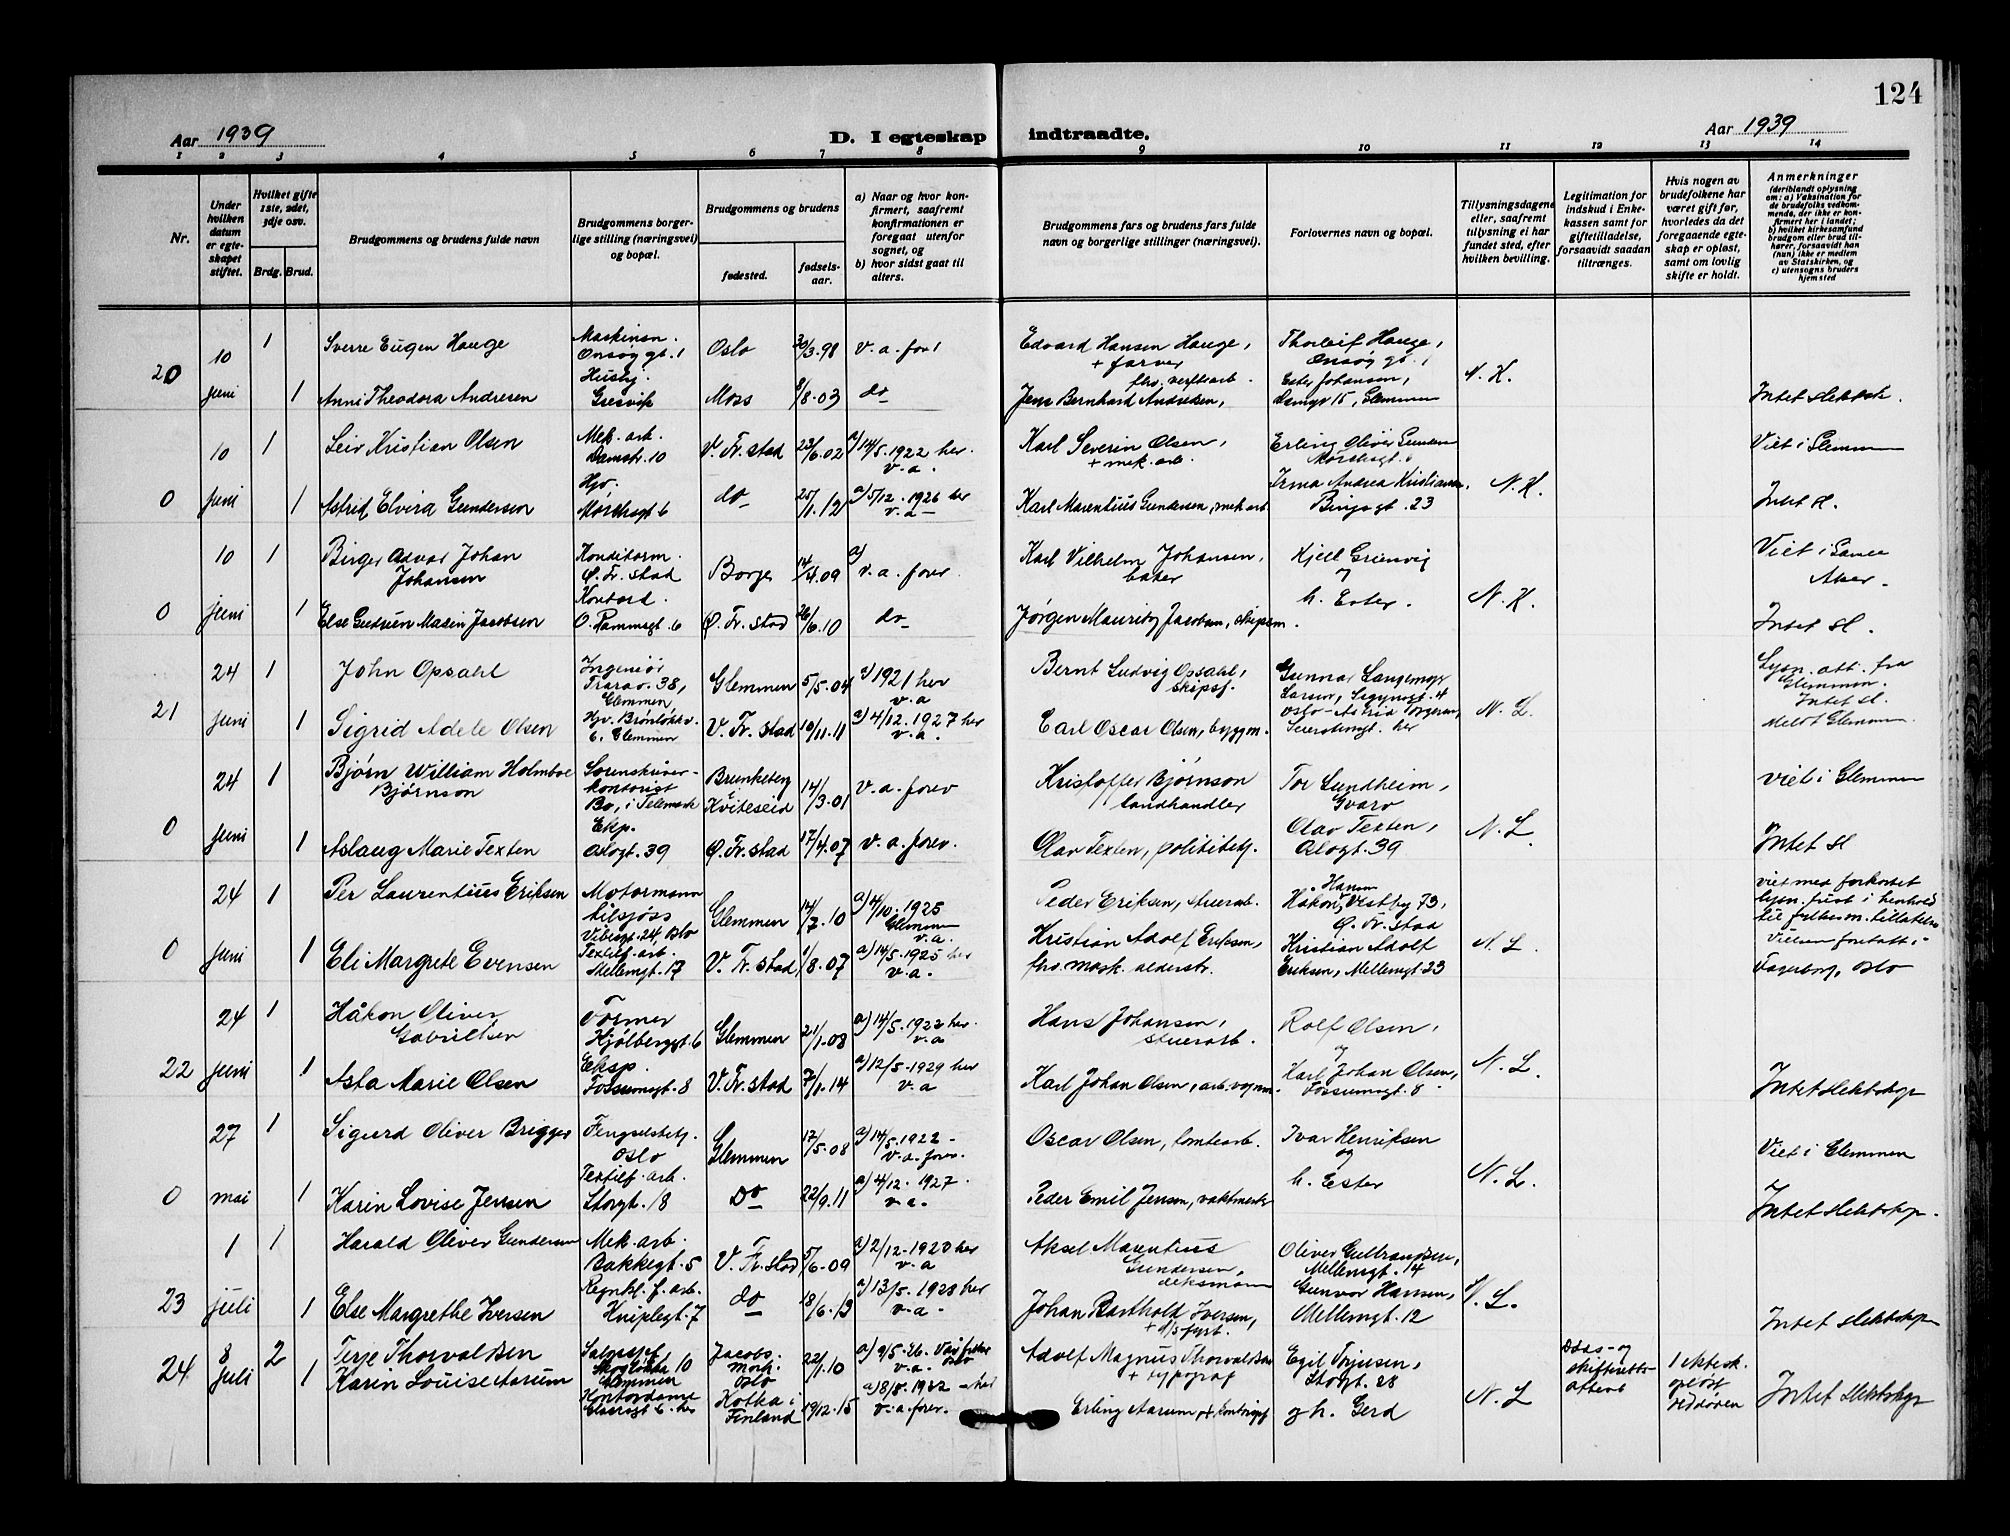 124
Aar 1939
D. I egteskap indtraadte.
Aar 1939
1 2 3 4 5 6 7 8 9 10 11 12 13 14
Nr.
Under hvilken datum er egteskapet stiftet.
Hvilket gifte 1ste, 2det, 3dje osv.
Brdg. Brud.
Brudgommens og brudens fulde navn
Brudgommens borgerlige stilling (næringsvei) og bopæl.
Brudgommens og brudens
fødested.
fødselsaar.
a) Naar og hvor konfirmert, saafremt konfirmationen er foregaat utenfor sognet, og
b) hvor sidst gaat til alters.
Brudgommens fars og brudens fars fulde navn og borgerlige stillinger (næringsvei).
Forlovernes navn og bopæl.
Tillysningsdagene eller, saafremt tillysning ei har fundet sted, efter hvilken bevilling.
Legitimation for indskud i Enkekassen samt for giftetilladelse, forsaavidt saadan tiltrænges.
Hvis nogen av brudefolkene har været gift før, hvorledes da det foregaaende egteskap er opløst, samt om lovlig skifte er holdt.
Anmerkninger
(deriblandt oplysning om: a) Vaksination for de brudefolks vedkommende, der ikke er konfirmert her i landet; b) hvilket kirkesamfund brudgom eller brud tilhører, forsaavidt han (hun) ikke er medlem av Statskirken, og c) utensogns bruders hjemsted
20
10 juni
1
Sverre Eugen Hauge
Maskinsn. Onsøygt. 1
Oslo
30/3.98
v. a. for
Edvard Hansen Hauge,
+ farver
Thorleif Hauge,
Onsøygt. 1
N. K.
1
Anni Theodora Andresen
Husbj. Gressvik
Moss
8/8.03
do
fhv. verftsarb.
Jens Bernhard Andresen,
Ester Johansen,
Damgt 15, Glemmen
Intet slektsk.
0
10 juni
1
Leiv Kristian Olsen
Mek. arb.
Damstr. 10
V. Fr. stad
23/6.02
a) 14/5.1922 her.
v. a.
Karl Severin Olsen,
+ mek. arb.
Erling Oliver Gundersen
N. K.
Viet i Glemmen
1
Astrid Elvira Gundersen
Hjv.
do
25/1.12
a) 5/12.1926 her
v. a
Karl Marentius Gundersen, mek. arb.
Irma Andrea Kristiansen.
Bingsgt. 23
Intet sl.
0
10 juni
1
Birger Advar Johan
Johansen
Konditorm.
Ø. Fr. stad
Borge
14/4.09
a)
v. a. forev.
Karl Vilhelm Johansen,
baker
Kjell Grimsvig
og
h. Ester.
N. K.
Viet i
Aker.
1
Else Gudrun Masin Jacobsen
Kontord.
O. Rammsgt. 6
Ø. Fr. stad
26/6.10
do
Jørgen Mauritz Jacobsen, skipsm.
Intet sl.
21
24 juni
1
John Opsahl
Ingeniør
Trarav. 38,
Glemmen
Glemmen
5/5.04
a) 1921 her
v. a
Bernt Ludvig Opsahl,
skipsf.
Gunnar Langemyr
Larsen, Segynsgt. 4
Oslo - Astrid Torgersen,
her
N. L.
Lysn. att. fra
Glemmen.
Intet sl.
Meldt Glemmen
1
Sigrid Adele Olsen
Hjv.
Glemmen
V. Fr. stad
10/11.11
a) 4/12.1927 her
v. a.
Carl Oscar Olsen, byggm.
0
24 juni
1
Bjørn William Holmboe
Bjørnson
Sorenskriver-
kontorist
Bø, i Telemark
Brunkeberg
i
Kviteseid
14/3.01
v. a. forev
Kristoffer Bjørnson
landhandler
Tor Sundheim,
Gvarv
N. L.
Viet i Glemmen
1
Aslaug Marie Texten
Eksp.
Oslogt. 39
Ø. Fr. stad
17/4.07
v. a. forev.
Olav Texten, politibetj.
Olav Texten,
Oslogt. 39
Intet sl
0
24 juni
1
Per Laurentius Eriksen
Motormann
tilsjøss
Vibesgt. 24, Oslo
Glemmen
14/7.10
a) 4/10.1925
Glemmen
v. a.
Peder Eriksen, stuerarb.
Hansen
Håkon, Vestby 73,
Ø. Fr. stad
N. L.
viet med forkortet
lysn. frist i henhold
til fylkesm. tillatelse
Vielsen foretatt i
Fagerborg, Oslo
1
Eli Margrete Evensen
Textilf. arb.
Mellemgt. 17
V. Fr. stad
1/8.07
a) 14/5.1925 her
v. a.
Kristian Adolf Eriksen,
fhv. mask. alderstr.
Kristian Adolf
Eriksen, Mellemgt 23
22
24 juni
1
Håkon Oliver
Gabrielsen
Former
Hjølberggt. 6
Glemmen
21/1.08
a) 14/5.1922 her.
v. a
Hans Johansen,
stuerarb.
Rolf Olsen,
og
N. L.
1
Asta Marie Olsen
Eksp.
Fossumsgt. 8
V. Fr. stad
7/1.14
a) 12/5.1929 her
v. a
Karl Johan Olsen, arb. vognm.
Karl Johan Olsen,
Fossumsgt. 8
Intet slektskap
0
27 mai
1
Sigurd Oliver Brigger
Fengselsbetj.
Oslo
Glemmen
17/5.08
a) 14/5.1922 -
v. a. forev.
Oscar Olsen, tomtearb.
Ivar Henriksen
og
h. Ester
N. L.
Viet i Glemmen
1
Karin Lovise Jensen
Textilf. arb.
Storgt. 18
Do
22/9.11
a) 4/12.1927.
v. a.
Peder Emil Jensen, vaktmester
Intet slektskap.
23
1 juli
1
Harald Oliver Gundersen
Mek. arb.
Bakkegt. 5
V. Fr. stad
5/6.09
a) 2/12.1923 her
v. a
Aksel Marentius
Gundersen,
deksmann
Oliver Gulbrandsen,
Mellemgt. 14
N. L.
1
Else Margrethe Iversen
Regnkl. f. arb.
Kniplegt. 7
do
18/6.13
a) 13/5.1928 her
v. a.
Johan Barthold Iversen,
+ d/s fyrb.
Gunvor Hansen,
Mellemgt. 12
Intet slektskap
24
8 juli
2
Terje Thorvaldsen
10
Glemmen
Jacobs-
mark.
Oslo
22/1.10
a) 9/5.26.
v. a. Oslo
Adolf Magnus Thorvaldsen
+ typograf
Egil Torjusen,
Storgt. 28
N. L
Døds- og
skifteretts-
attest
1 ektesk.
opløst
ved døden
Intet slektskap
1
Karin Louise Aarum
Kontordame
6. her
Kotka i
Finland
19/12.15
a) 8/5.1932 - her
v. a. forev.
Erling Aarum, kontorist
og h. Gerd